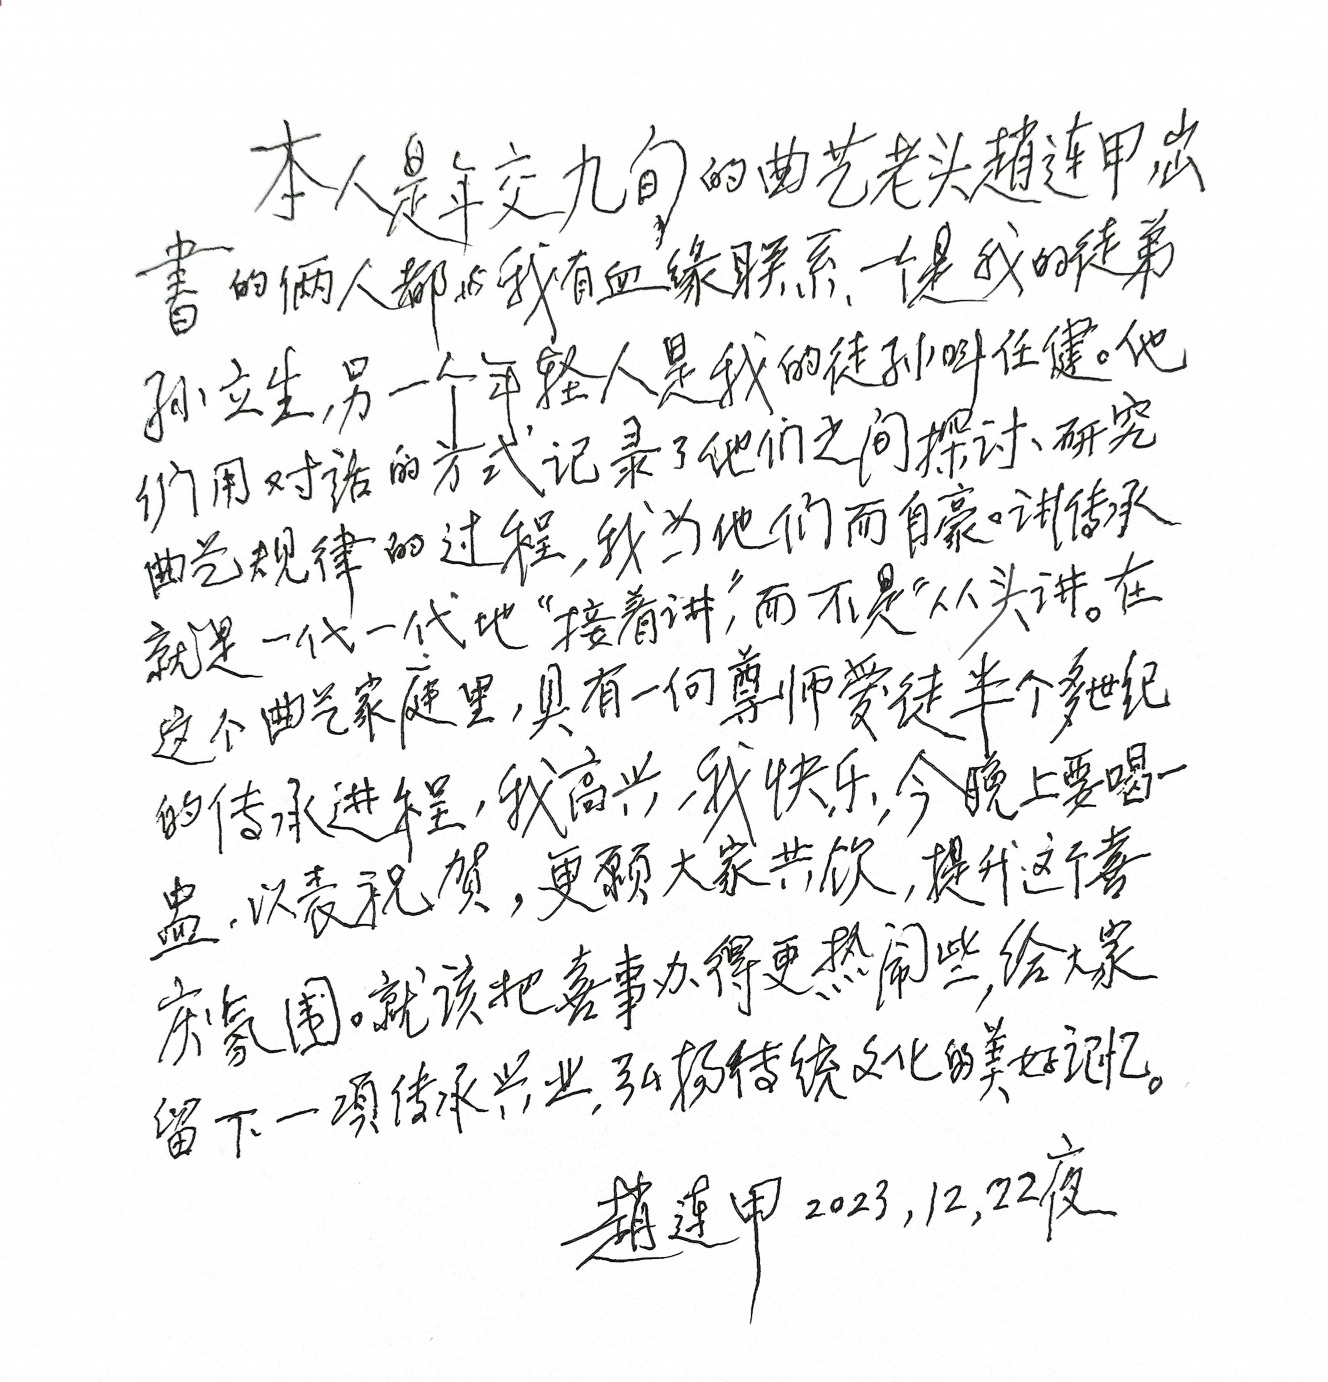 本人是年交九旬的曲艺老头趙连甲,出
書的俩人都与我有血缘联系、一个是我的徒弟
孙立生,另一个年轻人是我的徒孙叫任健。他
们用对话的方式记录了他们之间探讨、研究
曲艺规律的过程,我为他们而自豪。讲传承
就是一代一代地“接着讲”,而不是“从头讲。在
这个曲艺家庭里,具有一何尊师爱徒半个多世纪
的传承进程,我高兴,我快乐,今晚上要喝一
盅.以表祝贺,更願大家共饮,提升这个喜
庆氛围。就该把喜事办得更热闹些,给大家
留下一项传承兴业,弘扬传统文化的美好记忆。
趙连甲 2023,12,22夜